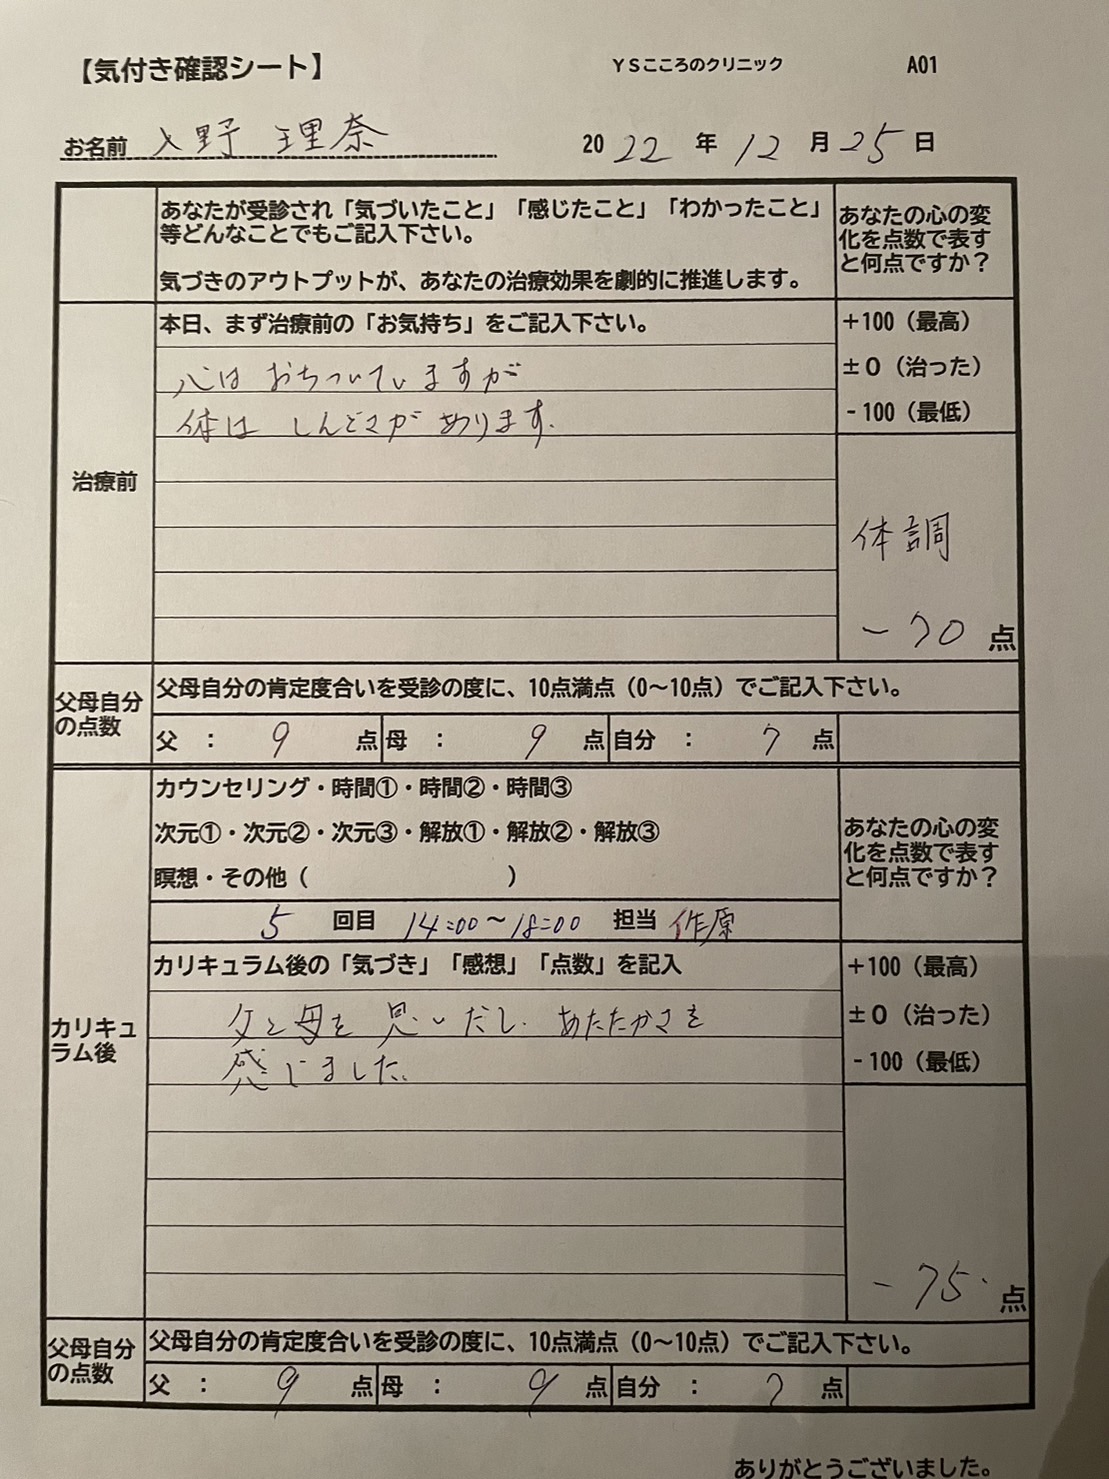 【気付き確認シート】 YSこころのクリニック A01
お名前 入野 理奈 2022年12月25日
あなたが受診され「気づいたこと」「感じたこと」「わかったこと」
等どんなことでもご記入下さい。
気づきのアウトプットが、あなたの治療効果を劇的に推進します。
あなたの心の変
化を点数で表す
と何点ですか？
治療前
本日、まず治療前の「お気持ち」をご記入下さい。
心は おちついていますが
体は しんどさが あります.
+100（最高）
±0（治った）
-100（最低）
体調
-70 点
父母自分
の点数
父母自分の肯定度合いを受診の度に、10点満点（0～10点）でご記入下さい。
父 ： 9 点 母 ： 9 点 自分 ： 7 点
カウンセリング・時間①・時間②・時間③
次元①・次元②・次元③・解放①・解放②・解放③
瞑想・その他（ ）
あなたの心の変
化を点数で表す
と何点ですか？
5 回目 14:00～18:00 担当 作原
カリキュ
ラム後
カリキュラム後の「気づき」「感想」「点数」を記入
父と母を 思いだし. あたたかさを
感じました.
+100（最高）
±0（治った）
-100（最低）
-75. 点
父母自分
の点数
父母自分の肯定度合いを受診の度に、10点満点（0～10点）でご記入下さい。
父 ： 9 点 母 ： 9 点 自分 ： 7 点
ありがとうございました。